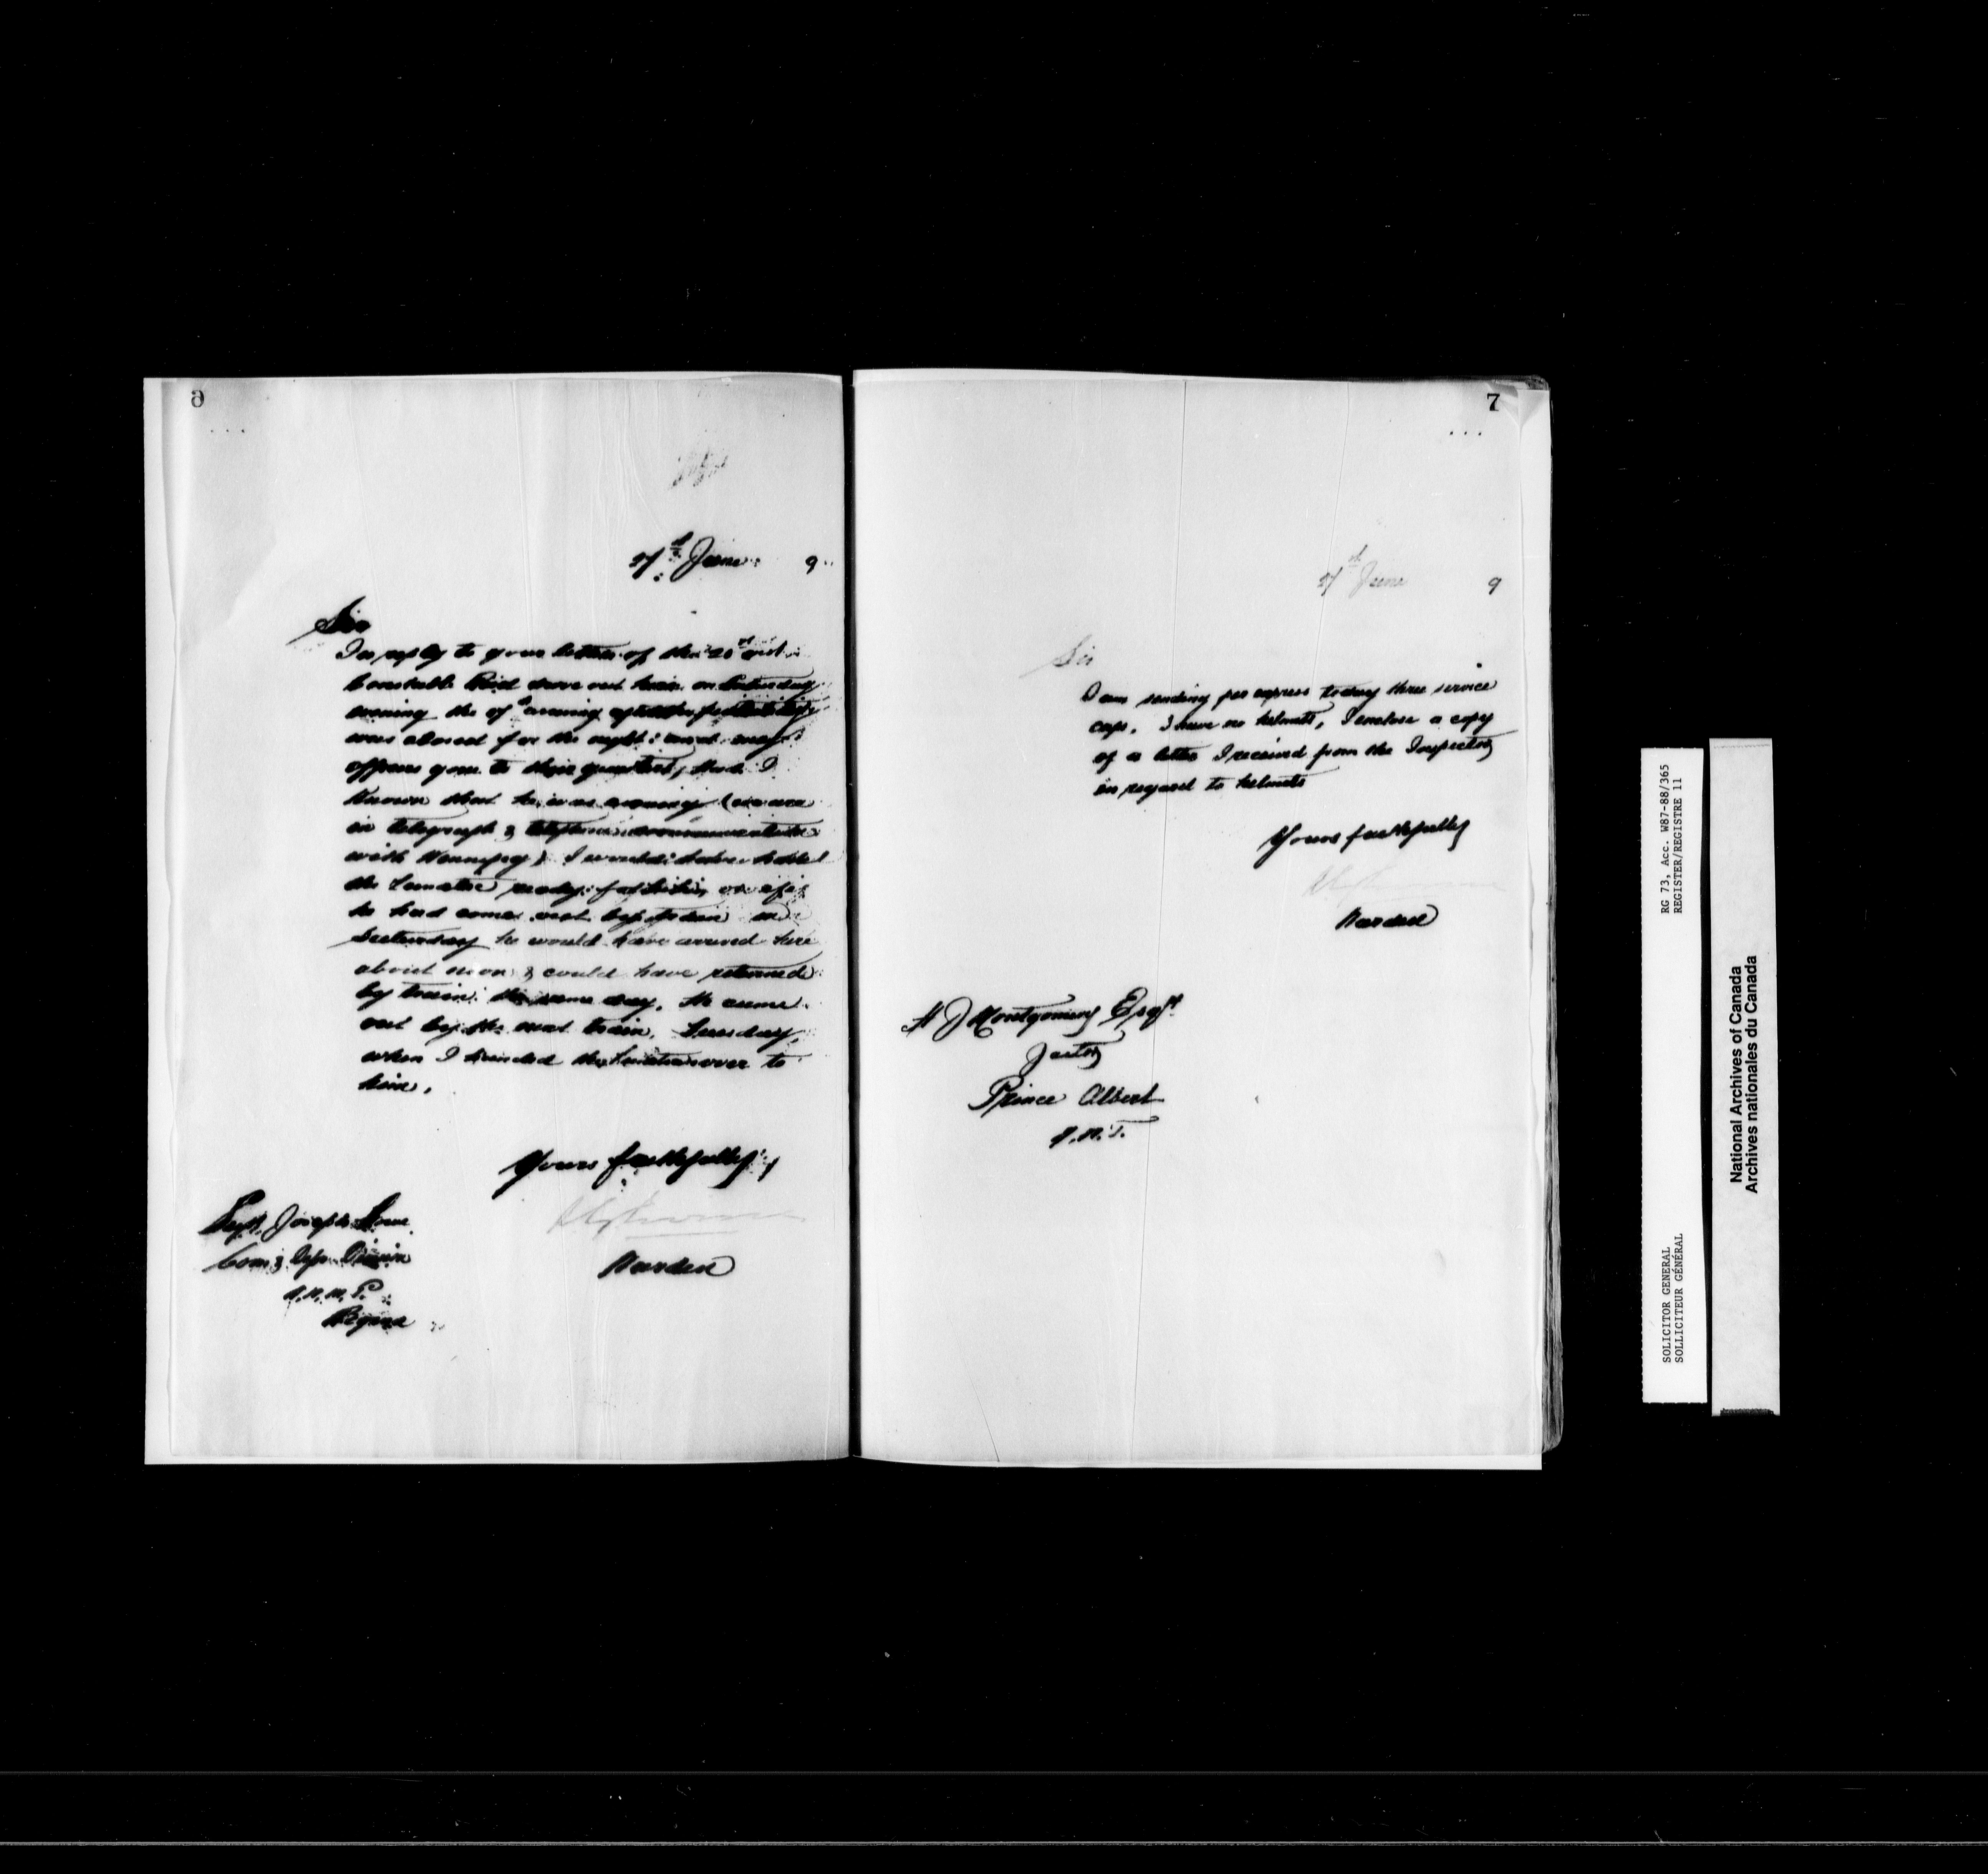 6
27th June 9
Sir
In reply to your letter of the 20th inst.
Constable Reid drove out here on Saturday
evening the evening after the
was closed for the night: and
officers gone to their quarters, had I
known that he was coming (we are
in telegraph & telephone communication
with Winnipeg) I would have had
the Lunatic ready for him, or if
he had come out by train on
Saturday he would have arrived here
about noon & could have returned
by train the same day. He came
out by the next train, Tuesday,
when I handed the Lunatic over to
him.
Yours faithfully
Warden
Supt. Joseph Howe
Comg Depot Division
N.W.M.P.
Regina
7
27th June 9
Sir
I am sending per express today three service
caps. I have no helmets, I enclose a copy
of a letter I received from the Inspector
in regard to helmets
Yours faithfully
Warden
H J Montgomery Esqr
Jailor
Prince Albert
N.W.T.
RG 73, Acc. W87-88/365
REGISTER/REGISTRE 11
SOLICITOR GENERAL
SOLLICITEUR GÉNÉRAL
National Archives of Canada
Archives nationales du Canada